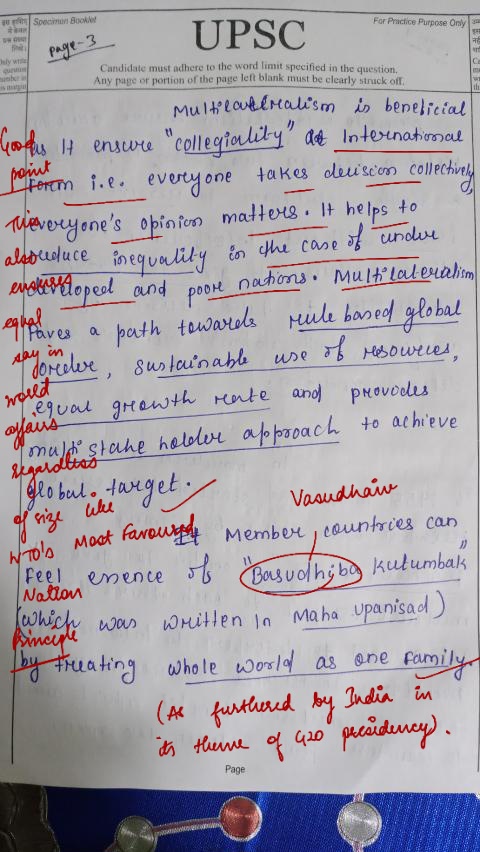 Specimen Booklet
For Practice Purpose Only
page-3
UPSC
Candidate must adhere to the word limit specified in the question.
Any page or portion of the page left blank must be clearly struck off.
Multilateralism is beneficial
as It ensure "collegiality" at International
form i.e. everyone takes decision collectively,
everyone's opinion matters. It helps to
reduce inequality in the case of under
developed and poor nations. Multilateralism
Paves a path towards rule based global
order, sustainable use of resources,
equal growth rate and provides
multi stake holder approach to achieve
global target.
Member countries can
Feel essence of "Basudhiba Kutumbak"
(which was written in Maha upanisad)
by treating whole world as one family.
Good
point
This
also
ensures
equal
say in
world
affairs
regardless
of size like
WTO's Most Favoured
Nation
Principle
Vasudhaiv
(As furthered by India in
its theme of G20 presidency).
Page